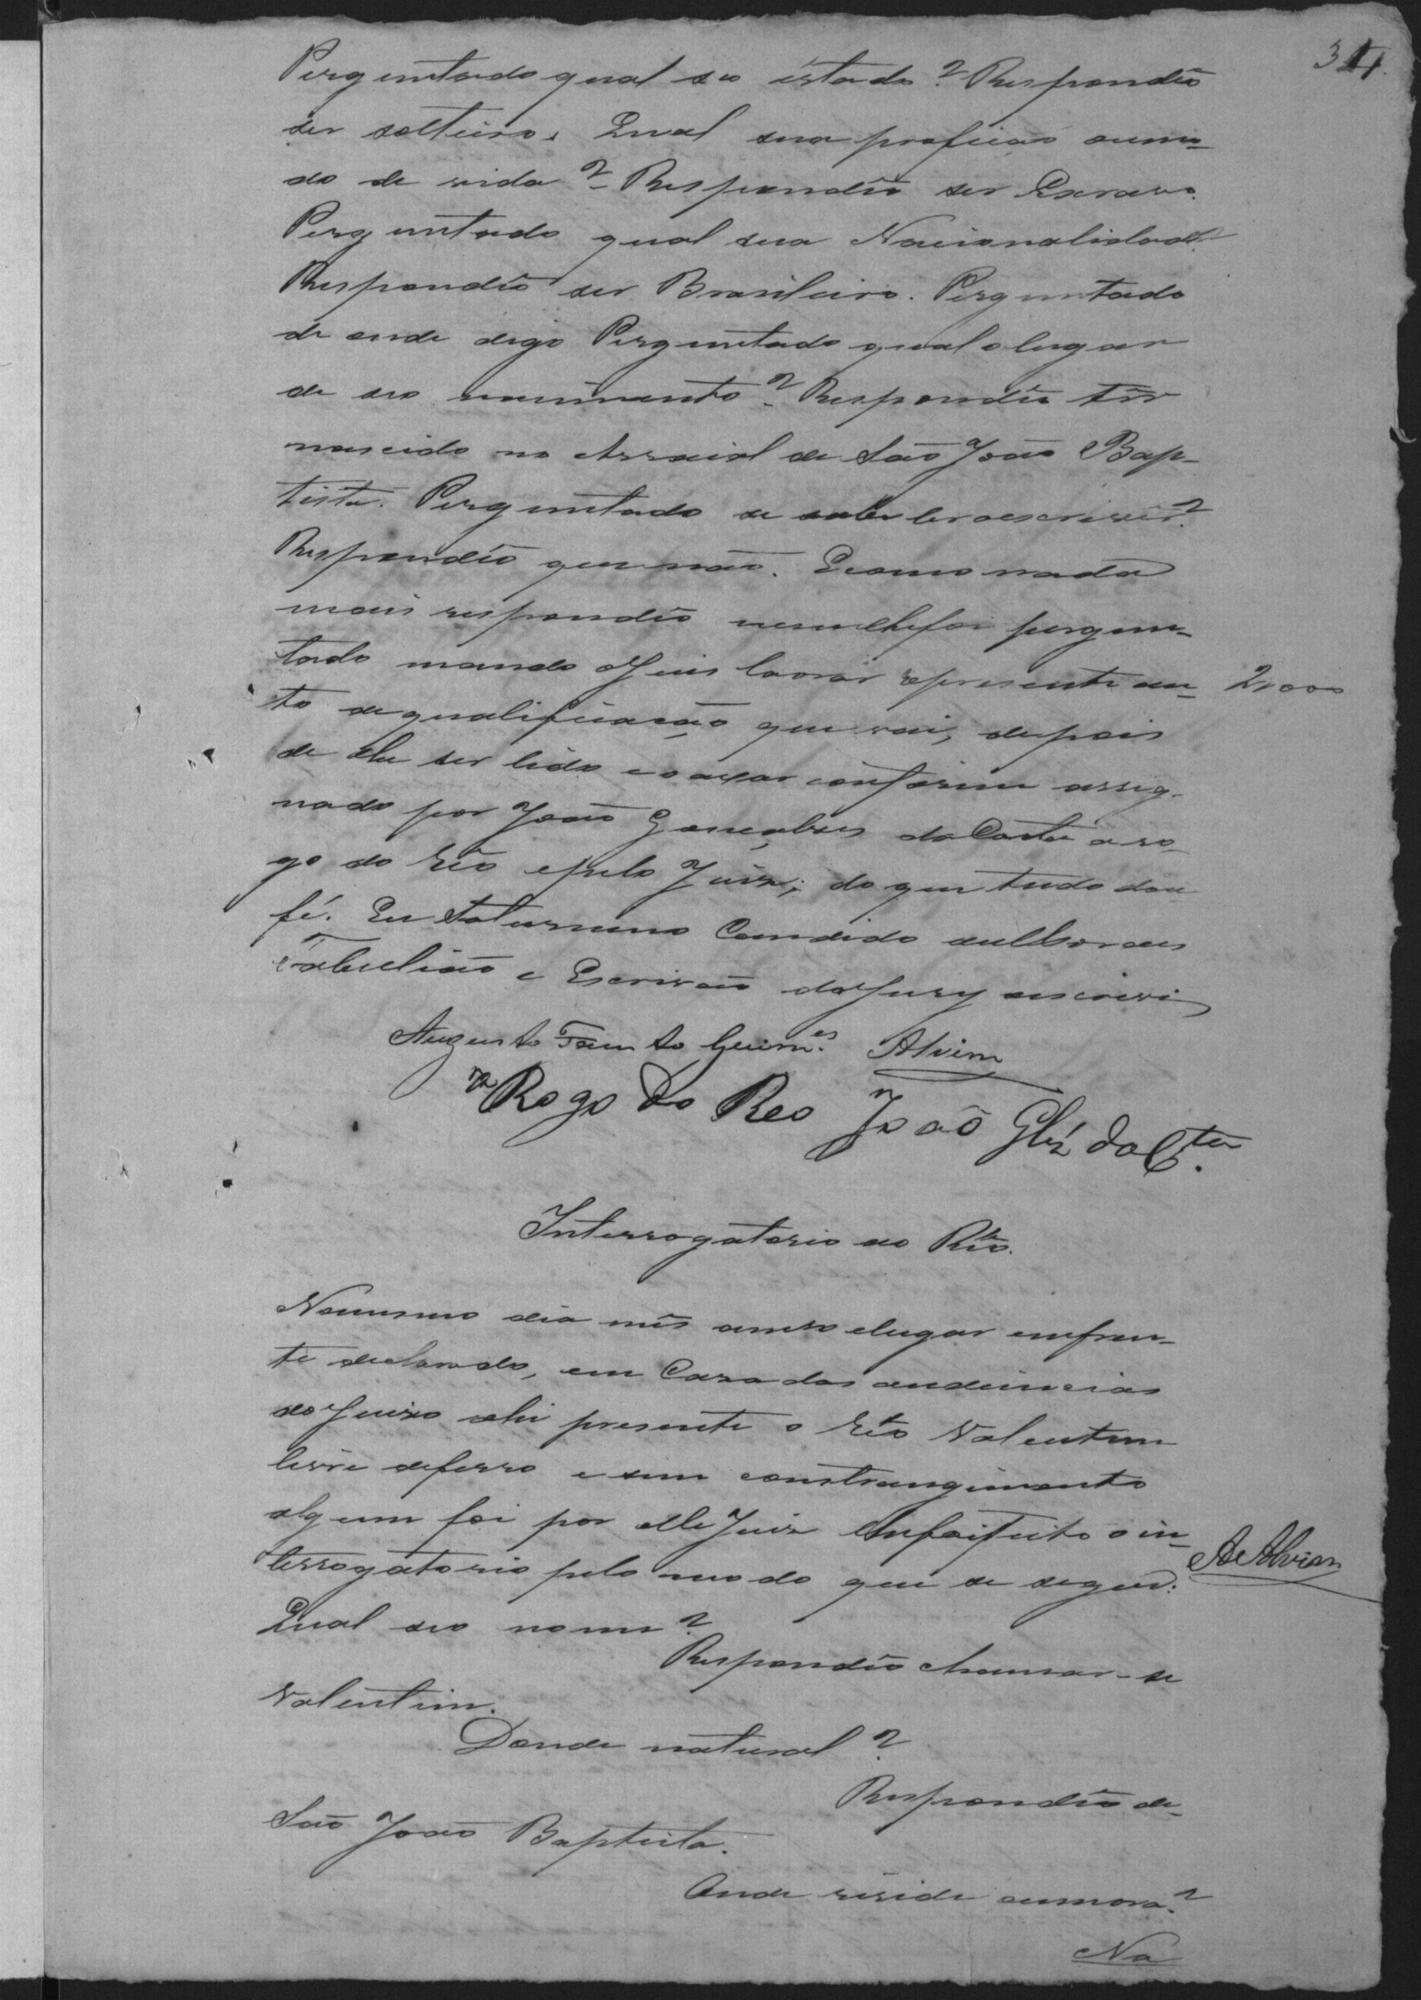 34
Perguntado qual seo estado? Respondêo
ser solteiro. Qual sua profição oumo-
do de vida? Respondêo ser Escravo.
Perguntado qual sua Nacionalidade?
Respondêo ser Brasileiro. Perguntado
de onde digo Perguntado qual o lugar
de seo nascimento? Respondêo têr
nascido no Arraial de São João Bap-
tista. Perguntado se sabe ler oescrever?
Respondêo que não. Ecomo nada
mais respondêo nemlhefoi pergun-
tado mando o Juis lavrar opresente au- 2,000
to dequalificação que vai, depois
de lhe ser lido eoaxar conforme assig-
nado por João Gonçalves da Costa a ro-
go do Réo epelo Juiz; do que tudo dou
fé. Eu Saturnino Candido
Tabelião e Escrivão doJury escrevi
Augusto Guim.es Alvim
a Rogo do Reo João Glz' da C.ta
Interrogatorio ao Réo.
Nomesmo dia mês anno elugar emfren-
te declarado, em Caza das audiencias
do Juizo ahi presente o Réo Valentim
livre deferro e sem constrangimento
algum foi por elle Juiz lhefoifeito o in-
terrogatorio pelo modo que se segue: A e Alvim
Qual seo nome?
Respondêo chamar-se
Valentim.
Donde natural?
Respondêo de-
São João Baptista.
Onde reside oumora?
Na